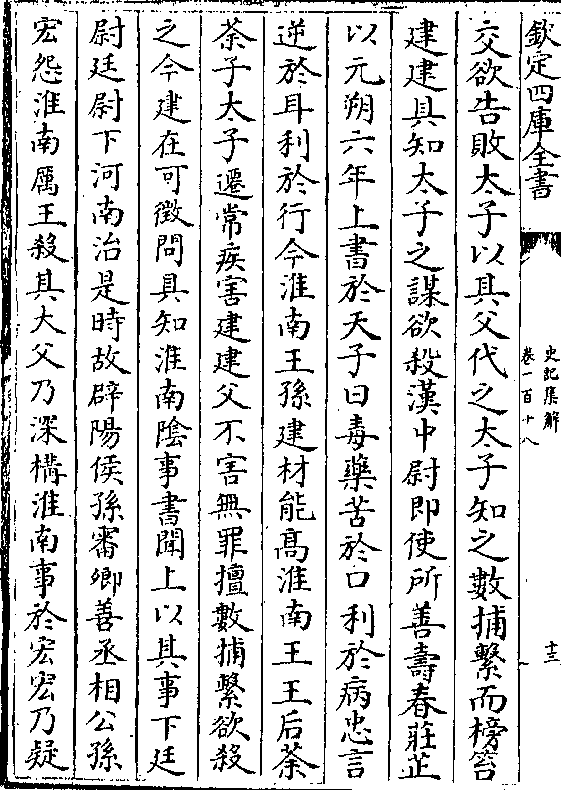 欽定四庫全書
史記集解
卷一百十八
十三
交欲告敗太子以其父代之太子知之數捕繫而榜笞
建建具知太子之謀欲殺漢中尉即使所善壽春莊芷
以元朔六年上書於天子曰毒藥苦於口利於病忠言
逆於耳利於行今淮南王孫建材能髙淮南王王后荼
荼子太子遷常疾害建建父不害無罪擅數捕繫欲殺
之今建在可徵問具知淮南隂事書聞上以其事下廷
尉廷尉下河南治是時故辟陽侯孫審卿善丞相公孫
宏怨淮南厲王殺其大父乃深構淮南事於宏宏乃疑